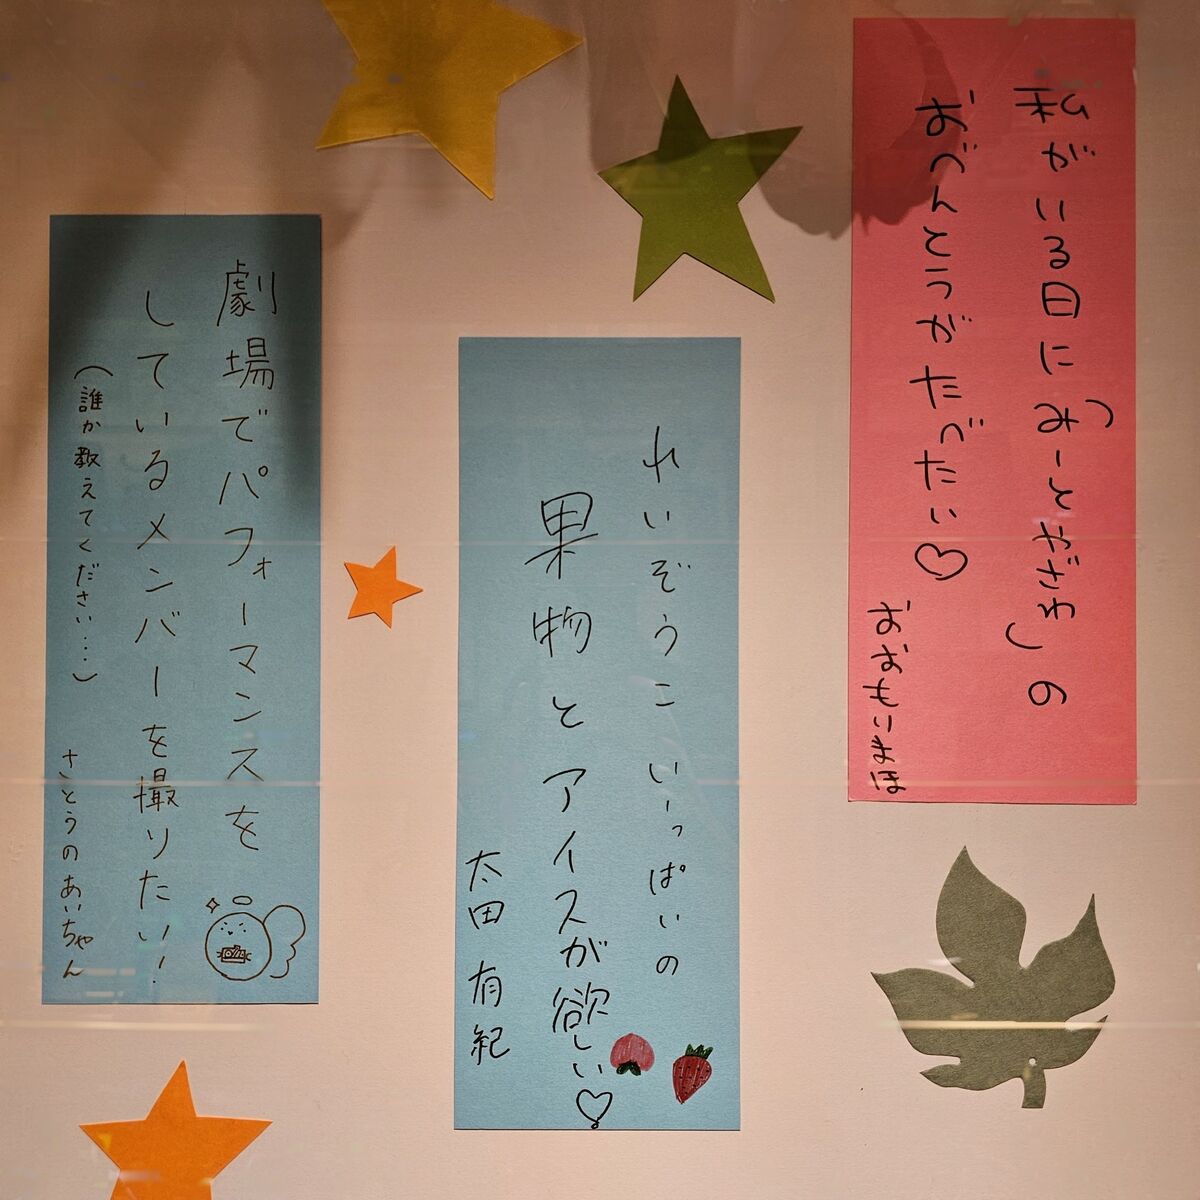 私がいる日に「みーとやざわ」の
おべんとうがたべたい♡
おおもりまほ
れいぞうこいーっぱいの
果物とアイスが欲しい♡
太田有紀
劇場でパフォーマンスを
しているメンバーを撮りたい!
(誰か教えてください...)
さとうのあいちゃん